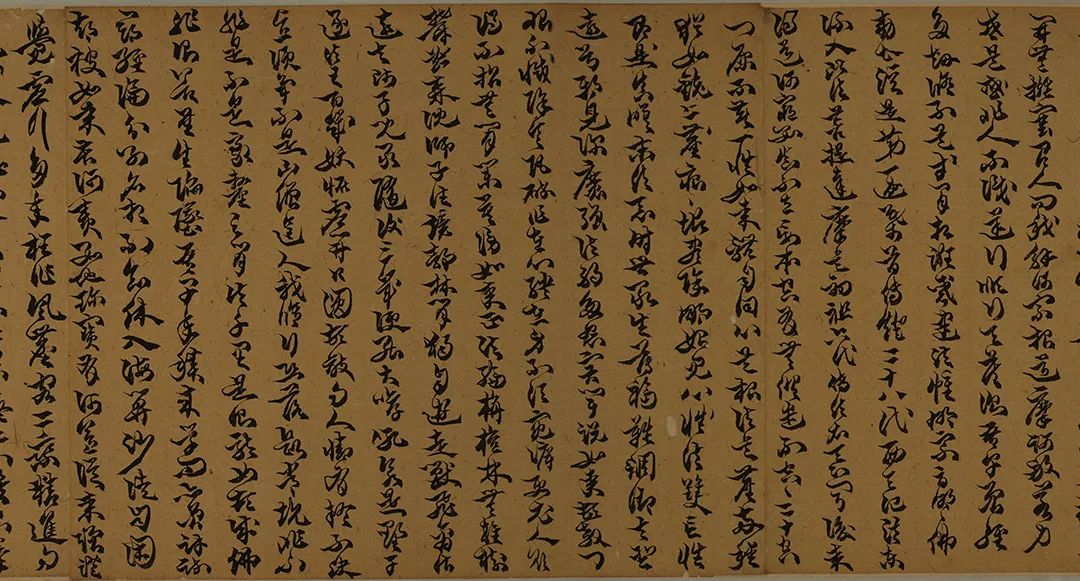 開無壅塞有人問我解何宗報道摩訶般若力
或是或非人不識逆行順行天莫測吾早曾經
多劫修不是等閑相誑惑建法幢立宗旨明明佛
勅曹溪是第一迦葉首傳燈二十八代西天記法東
流入此土菩提達摩為初祖六代傳衣天下聞後來
得道何窮數真不立妄本空有無俱遣不空空二十空
門源不著一性如來體自同心是根法是塵兩種
猶如鏡上塵痕垢盡除光始現心法雙亡性
即是真嗟末法惡時世衆生薄福難調制去聖
遠兮邪見深魔強法弱多怨害聞說如來頓教門
恨不滅除令瓦碎作在心殃在身不須冤訴更尤人欲
得不招無間業莫謗如來正法輪栴檀林無雜樹
鬱密森沈師子住境靜林間獨自遊走獸飛禽皆
遠去師子兒衆隨後三歲便能大哮吼若是野干
逐法王百年妖怪虛開口圓頓教勿人情有疑不決
直須爭不是山僧逞人我修行恐落斷常坑非不
非是不是差毫釐之失千里是則龍女頓成佛
非則善星生陷墜吾早年來積學問亦曾討疏
尋經論分別名相不知休入海算沙徒自困
却被如來苦訶責數他珍寶有何益從來蹭蹬
覺虛行多年枉作風塵客二乘精進勿